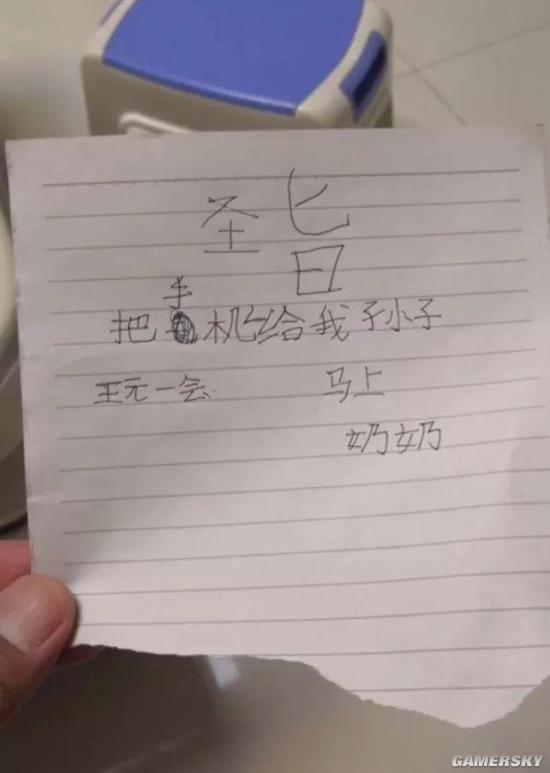 圣旨
把手机给我孙小子
王元一会 马上
奶奶
GAMERSKY